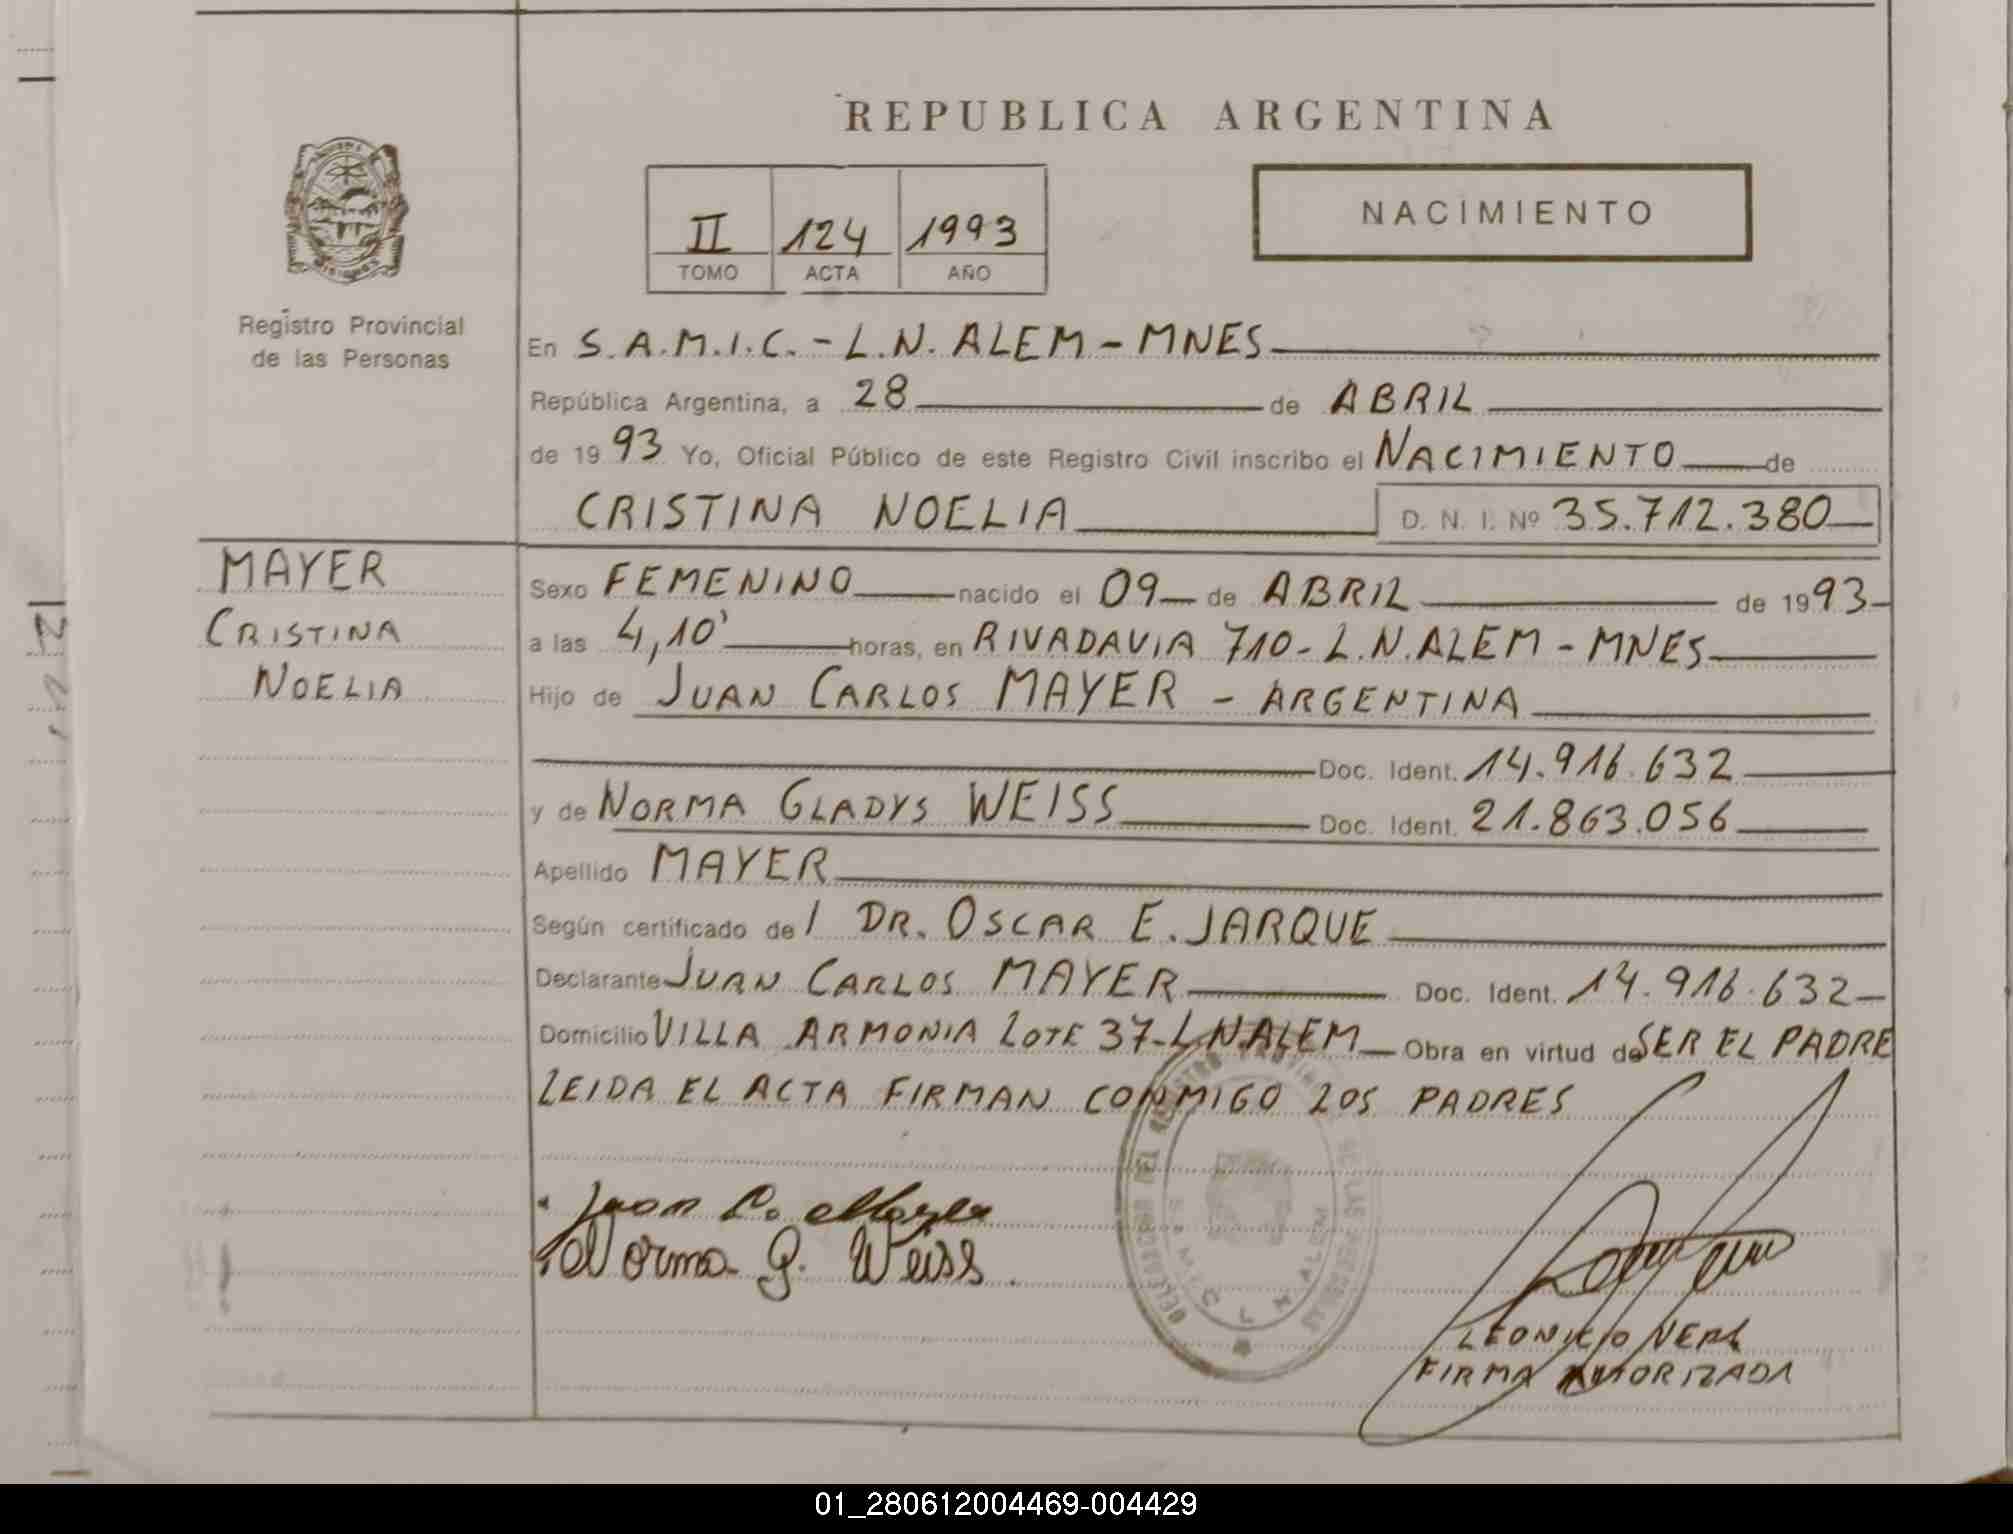 REPUBLICA ARGENTINA
II 124 1993
TOMO ACTA AÑO
NACIMIENTO
Registro Provincial
de las Personas
En S.A.M.I.C. - L.N. ALEM - MNES
República Argentina, a 28 de ABRIL
de 19 93 Yo, Oficial Público de este Registro Civil inscribo el NACIMIENTO de
CRISTINA NOELIA D. N. I. Nº 35.712.380
MAYER
CRISTINA
NOELIA
Sexo FEMENINO nacido el 09 de ABRIL de 19 93
a las 4,10' horas, en RIVADAVIA 710 - L.N. ALEM - MNES
Hijo de JUAN CARLOS MAYER - ARGENTINA
Doc. Ident. 14.916.632
y de NORMA GLADYS WEISS Doc. Ident. 21.863.056
Apellido MAYER
Según certificado de l DR. OSCAR E. JARQUE
Declarante JUAN CARLOS MAYER Doc. Ident. 14.916.632
Domicilio VILLA ARMONIA LOTE 37 - L.N. ALEM Obra en virtud de SER EL PADRE
LEIDA EL ACTA FIRMAN CONMIGO LOS PADRES
Juan C. Mayer
Norma G. Weiss
FIRMA AUTORIZADA
01_280612004469-004429